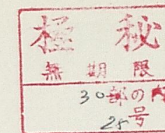 極秘
無期限
30部の内
25号